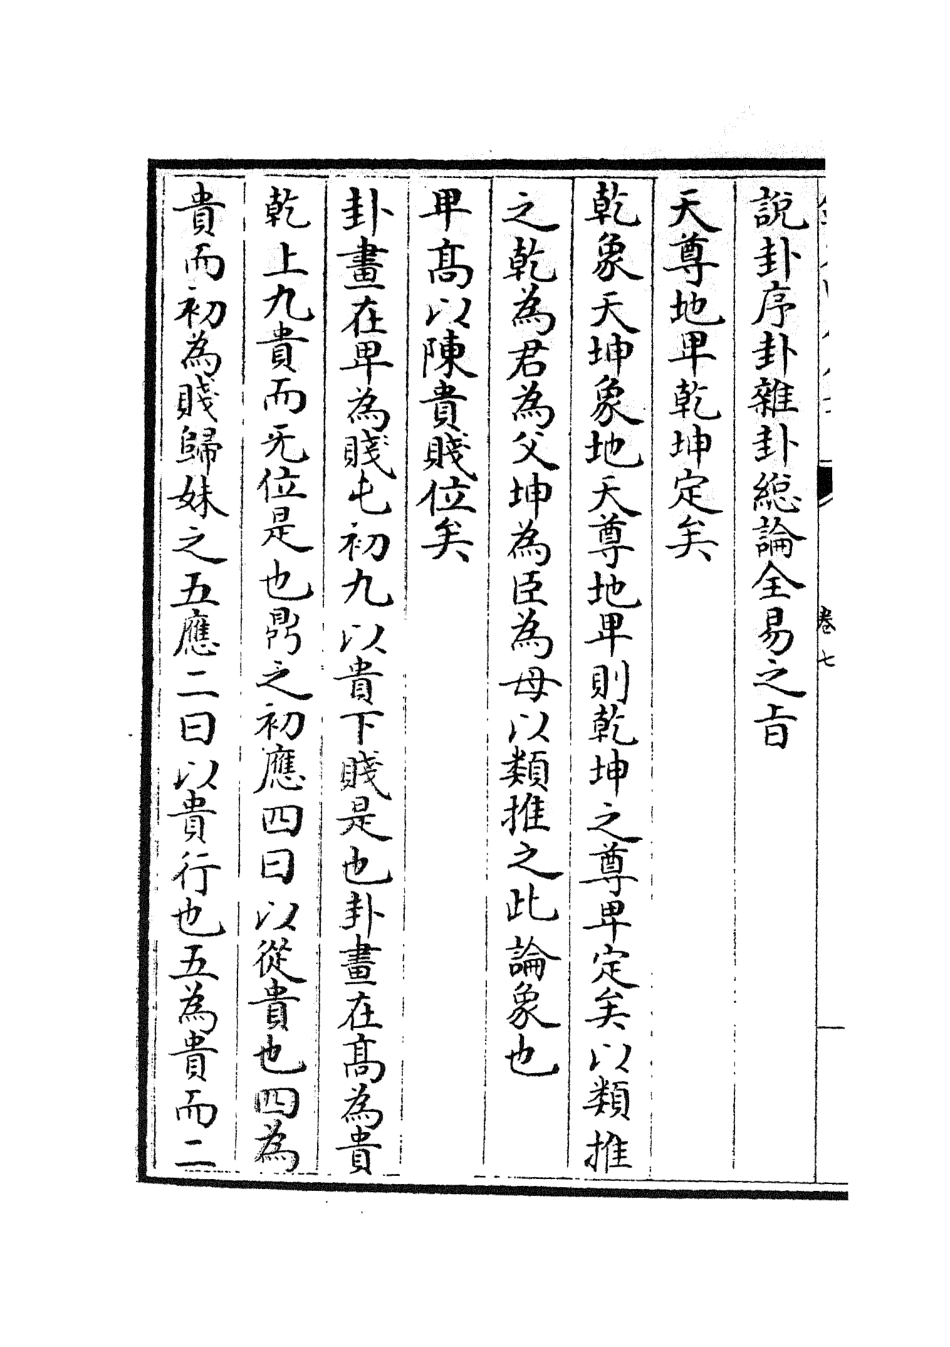 卷七
說卦序卦雜卦総論全易之㫖
天尊地卑乾坤定矣
乾象天坤象地天尊地卑則乾坤之尊卑定矣以類推
之乾為君為父坤為臣為母以類推之此論象也
卑髙以陳貴賤位矣
卦畫在卑為賤屯初九以貴下賤是也卦畫在髙為貴
乾上九貴而无位是也鼎之初應四曰以從貴也四為
貴而初為賤歸妹之五應二曰以貴行也五為貴而二